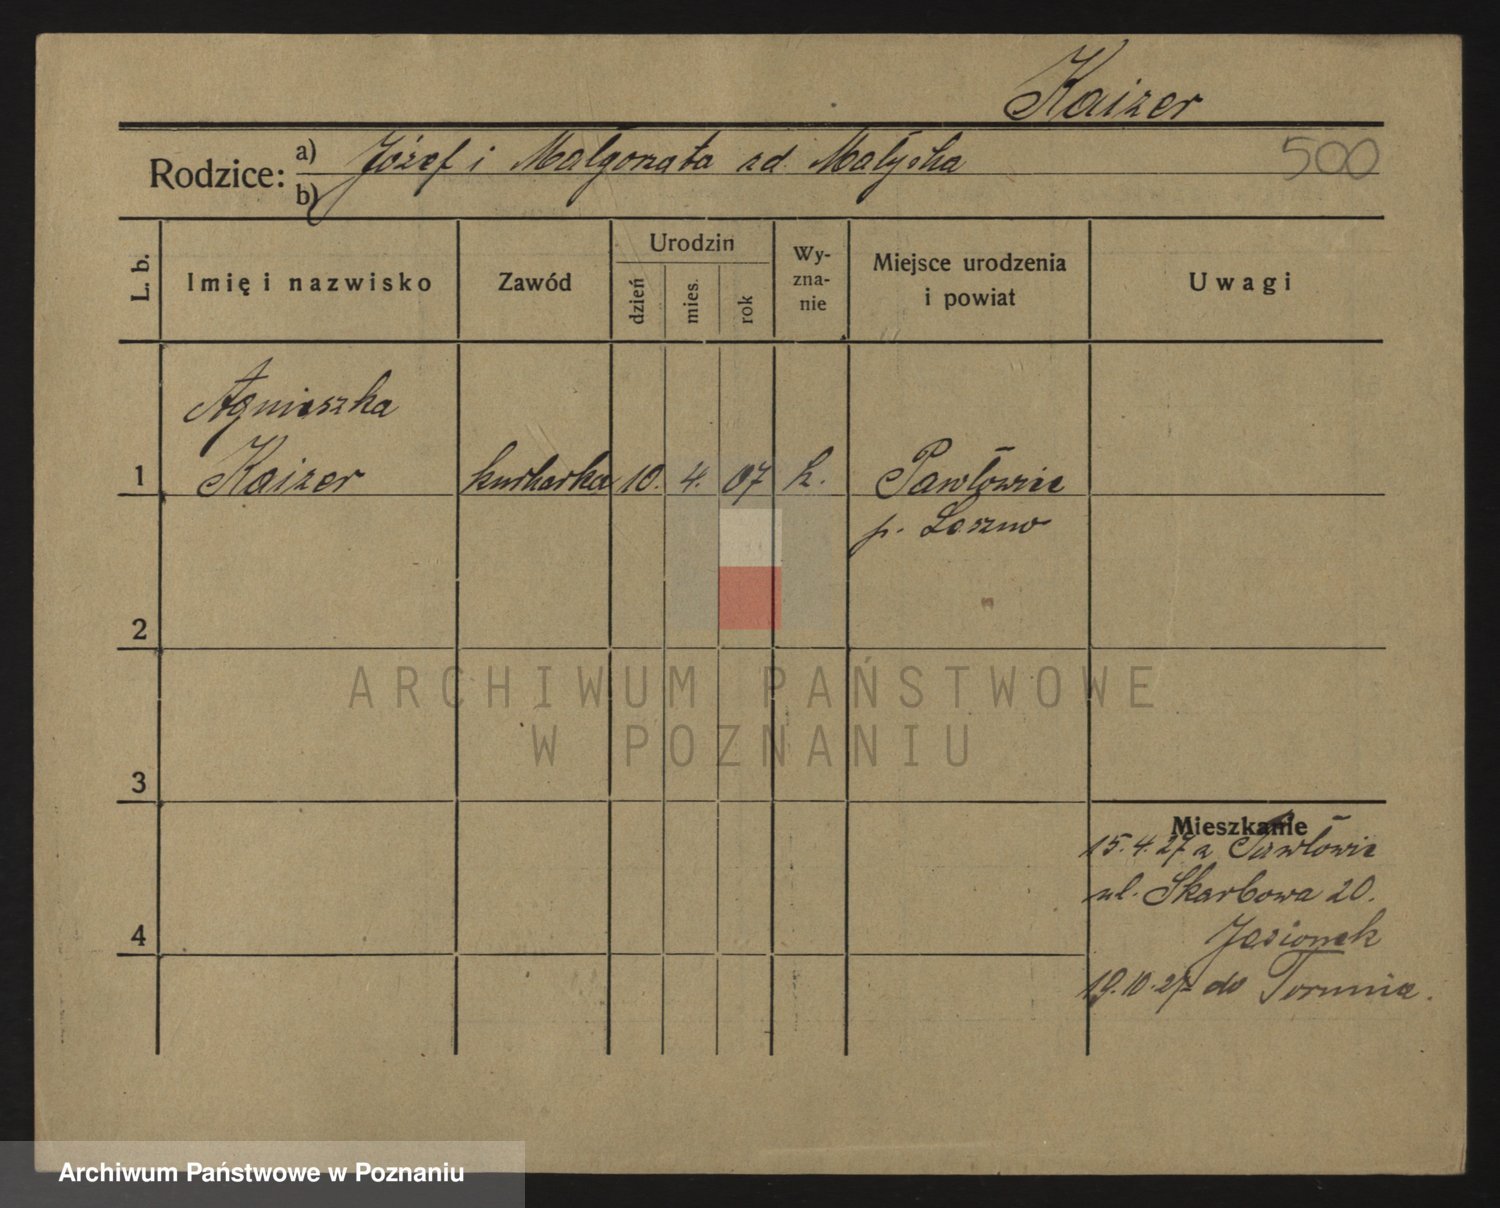 Kaizer
Rodzice: a) Józef i Małgorzata zd. Małycha
b)
500
L. b.
Imię i nazwisko
Zawód
Urodzin
dzień
mies.
rok
Wy-
zna-
nie
Miejsce urodzenia
i powiat
Uwagi
Agnieszka
1 Kaizer kucharka 10. 4. 07 k. Pawłowice
p. Leszno
2
ARCHIWUM PAŃSTWOWE
W POZNANIU
3
Mieszkanie
15.4.27 z Pawłowic
ul. Skarbowa 20.
4
Jesionek
19.10.27 do Torunia.
Archiwum Państwowe w Poznaniu